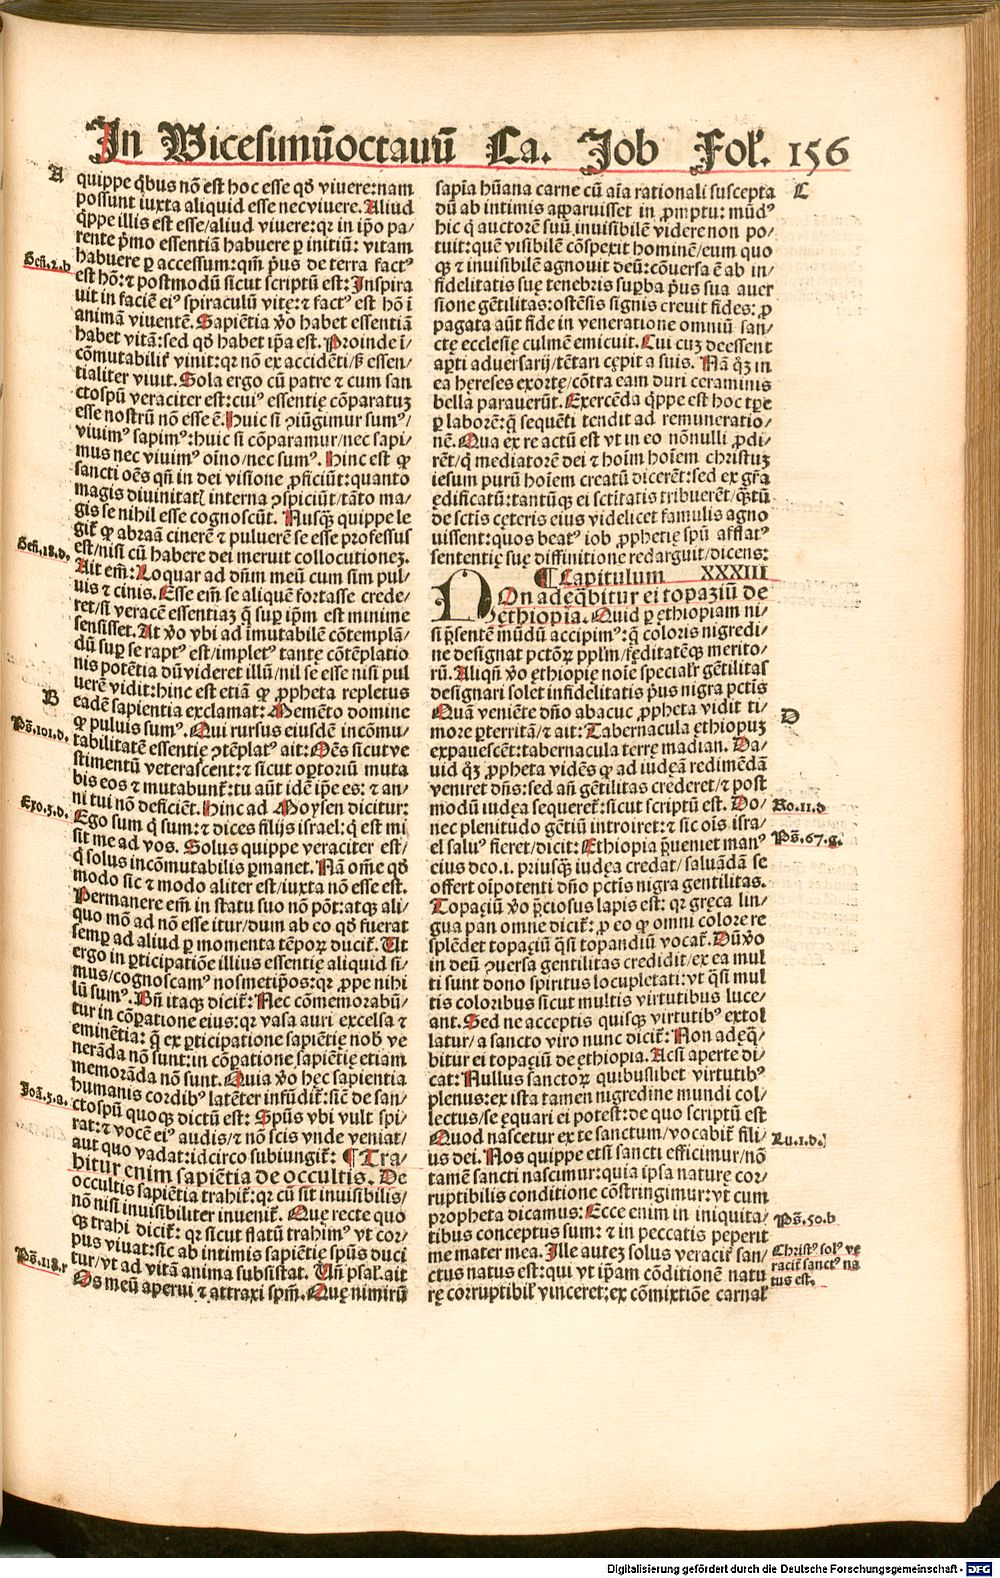 In Vicesimũoctauũ Ca. Job Fol. 156
A
quippe q̃bus nõ est hoc esse qđ viuere: nam
possunt iuxta aliquid esse nec viuere. Aliud
q̃ppe illis est esse/aliud viuere: qr in ip̃o pa/
rente p̃mo essentiã habuere ꝑ initiũ: vitam
habuere ꝑ accessum: qm̃ p̃us de terra factꝰ
Geñ.2.b
est hõ: ⁊ postmodũ sicut scriptũ est: Inspira
uit in faciẽ eiꝰ spiraculũ vitę: ⁊ factꝰ est hõ ĩ
animã viuentẽ. Sapiẽtia ṽo habet essentiã
habet vitã: sed qđ habet ip̃a est. Proinde ĩ/
cõmutabiliť viuit: qr nõ ex accidẽti/ß essen/
tialiter viuit. Sola ergo cũ patre ⁊ cum san
cto spũ veraciter est: cuiꝰ essentię cõparatuʒ
esse nostrũ nõ esse ẽ. Huic si ꝯiũgimur sumꝰ/
viuimꝰ sapimꝰ: huic si cõparamur/nec sapi/
mus nec viuimꝰ oĩno/nec sumꝰ. Hinc est ꝙ
sancti oẽs qñ in dei visione ꝓficiũt: quanto
magis diuinitatꝭ interna ꝯspiciũt/tãto ma/
gis se nihil esse cognoscũt. Nusq̃ quippe le
giť ꝙ abraã cinerẽ ⁊ puluerẽ se esse professus
Geñ.18.d.
est/nisi cũ habere dei meruit collocutioneʒ.
Ait em̃: Loquar ad dñm meũ cum sim pul/
uis ⁊ cinis. Esse em̃ se aliquẽ fortasse crede/
ret/si veracẽ essentiaʒ q̃ suꝑ ip̃m est minime
sensisset. At ṽo vbi ad imutabilẽ cõtemplã/
dũ suꝑ se raptꝰ est/impletꝰ tantę cõtẽplatio
nis potẽtia dũ videret illũ/nil se esse nisi pul
uerẽ vidit: hinc est etiã ꝙ ꝓpheta repletus
B
eadẽ sapientia exclamat: Memẽto domine
ꝙ puluis sumꝰ. Qui rursus eiusdẽ incõmu/
Ps̃.101.d.
tabilitatẽ essentię ꝯtẽplatꝰ ait: Oẽs sicut ve
stimentũ veterascent: ⁊ sicut opertoriũ muta
bis eos ⁊ mutabunť: tu aũt idẽ ip̃e es: ⁊ an/
ni tui nõ deficiẽt. Hinc ad Moysen dicitur:
Exo.3.d.
Ego sum q̃ sum: ⁊ dices filijs israel: q̃ est mi
sit me ad vos. Solus quippe veraciter est/
q̃ solus incõmutabilis ꝑmanet. Nã om̃e qđ
modo sic ⁊ modo aliter est/iuxta nõ esse est.
Permanere em̃ in statu suo nõ põt: atqʒ ali/
quo mõ ad nõ esse itur/dum ab eo qđ fuerat
semꝑ ad aliud ꝑ momenta tẽpoꝝ duciť. Ut
ergo in ꝑticipatiõe illius essentię aliquid si/
mus/cognoscamꝰ nosmetip̃os: qr ꝓpe nihi
lũ sumꝰ. Bñ itaqʒ diciť: Nec cõmemorabũ/
tur in cõꝑatione eius: qr vasa auri excelsa ⁊
eminẽtia: q̃ ex ꝑticipatione sapiẽtię nob̃ ve
nerãda nõ sunt: in cõꝑatione sapiẽtię etiam
memorãda nõ sunt. Quia ṽo hęc sapientia
humanis cordibꝰ latẽter infũdiť: siẽ de san/
Joã.3.a.
cto spũ quoqʒ dictũ est: Spũs vbi vult spi/
rat: ⁊ vocẽ eiꝰ audis/⁊ nõ scis vnde veniat/
aut quo vadat: idcirco subiungiť: ¶ Tra/
hitur enim sapiẽtia de occultis. De
occultis sapiẽtia trahiť: qr cũ sit inuisibilis/
nõ nisi inuisibiliter inueniť. Quę recte quo
qʒ trahi diciť: qr sicut flatũ trahimꝰ vt cor/
pus viuat: sic ab intimis sapiẽtię spũs duci
Ps̃.118.r
tur/vt ad vitã anima subsistat. Uñ psał. ait
Os meũ aperui ⁊ attraxi spm̃. Quę nimirũ
sapĩa hũana carne cũ aĩa rationali suscepta
C
dũ ab intimis apparuisset in ꝓmptu: mũdꝰ
hic q̃ auctorẽ suũ inuisibilẽ videre non po/
tuit: quẽ visibilẽ cõspexit hominẽ/eum quo
qʒ ⁊ inuisibilẽ agnouit deũ: cõuersa ẽ ab in/
fidelitatis suę tenebris suꝑba p̃us sua auer
sione gẽtilitas: ostẽsis signis creuit fides: ꝓ
pagata aũt fide in veneratione omniũ san/
ctę ecclesię culmẽ emicuit. Cui cuʒ deessent
apti aduersarij/tẽtari cępit a suis. Nã q̃ʒ in
ea hęreses exortę/cõtra eam duri ceraminis
bella parauerũt. Exercẽda q̃ppe est hoc tp̃e
ꝑ laborẽ: q̃ sequẽti tendit ad remuneratio/
nẽ. Qua ex re actũ est vt in eo nõnulli ꝓdi/
rẽt/q̃ mediatorẽ dei ⁊ hoĩm hoĩem christuʒ
iesum purũ hoĩem creatũ dicerẽt: sed ex gr̃a
ędificatũ: tantũqʒ ei sctĩtatis tribuerẽt/q̃tũ
de sctĩs cęteris eius videlicet famulis agno
uissent: quos beatꝰ iob ꝓphetię spũ afflatꝰ
sententię suę diffinitione redarguit/dicens:
¶ Capitulum XXXIII
NOn adęq̃bitur ei topaziũ de
ęthiopia. Quid ꝑ ęthiopiam ni/
si p̃sentẽ mũdũ accipimꝰ: q̃ coloris nigredi/
ne designat pctõꝝ ppl̃m/fęditatẽqʒ merito/
rũ. Aliqñ ṽo ęthiopię noĩe specialꝭ gẽtilitas
designari solet infidelitatis p̃us nigra pctĩs
Quã veniẽte dño abacuc ꝓpheta vidit ti/
D
more ꝑterritã/⁊ ait: Tabernacula ęthiopuʒ
expauescẽt: tabernacula terrę madian. Da/
uid q̃ʒ ꝓpheta vidẽs ꝙ ad iudęã redimẽdã
veniret dñs: sed añ gẽtilitas crederet/⁊ post
modũ iudęa sequereť: sicut scriptũ est. Do/
Ro.11.d
nec plenitudo gẽtiũ introiret: ⁊ sic oĩs isra/
el saluꝰ fieret/dicit: Ethiopia p̃ueniet manꝰ
Ps̃.67.g.
eius deo.i. priusq̃ iudęa credat/saluãdã se
offert oĩpotenti dño pctĩs nigra gentilitas.
Topaziũ ṽo p̃ciosus lapis est: qr gręca lin/
gua pan omne diciť: ꝓ eo ꝙ omni colore re
splẽdet topaziũ q̃si topandiũ vocať. Dũ ṽo
in deũ ꝯuersa gentilitas credidit/ex ea mul
ti sunt dono spiritus locupletati: vt q̃si mul
tis coloribus sicut multis virtutibus luce/
ant. Sed ne acceptis quisqʒ virtutibꝰ extol
latur/a sancto viro nunc diciť: Non adęq̃/
bitur ei topaziũ de ęthiopia. Acsi aperte di/
cat: Nullus sanctoꝝ quibuslibet virtutibꝰ
plenus: ex ista tamen nigredine mundi col/
lectus/se ęquari ei potest: de quo scriptũ est
Quod nascetur ex te sanctum/vocabiť fili/
Lu.1.d.
us dei. Nos quippe etsi sancti efficimur/nõ
tamẽ sancti nascimur: quia ipsa naturę cor/
ruptibilis conditione cõstringimur: vt cum
propheta dicamus: Ecce enim in iniquita/
Ps̃.50.b
tibus conceptus sum: ⁊ in peccatis peperit
me mater mea. Ille auteʒ solus veraciť san/
Christꝰ solꝰ ve
raciť sanctꝰ na
tus est.
ctus natus est: qui vt ip̃am cõditionẽ natu
rę corruptibilꝭ vinceret: ex cõmixtiõe carnał
Digitalisierung gefördert durch die Deutsche Forschungsgemeinschaft - DFG